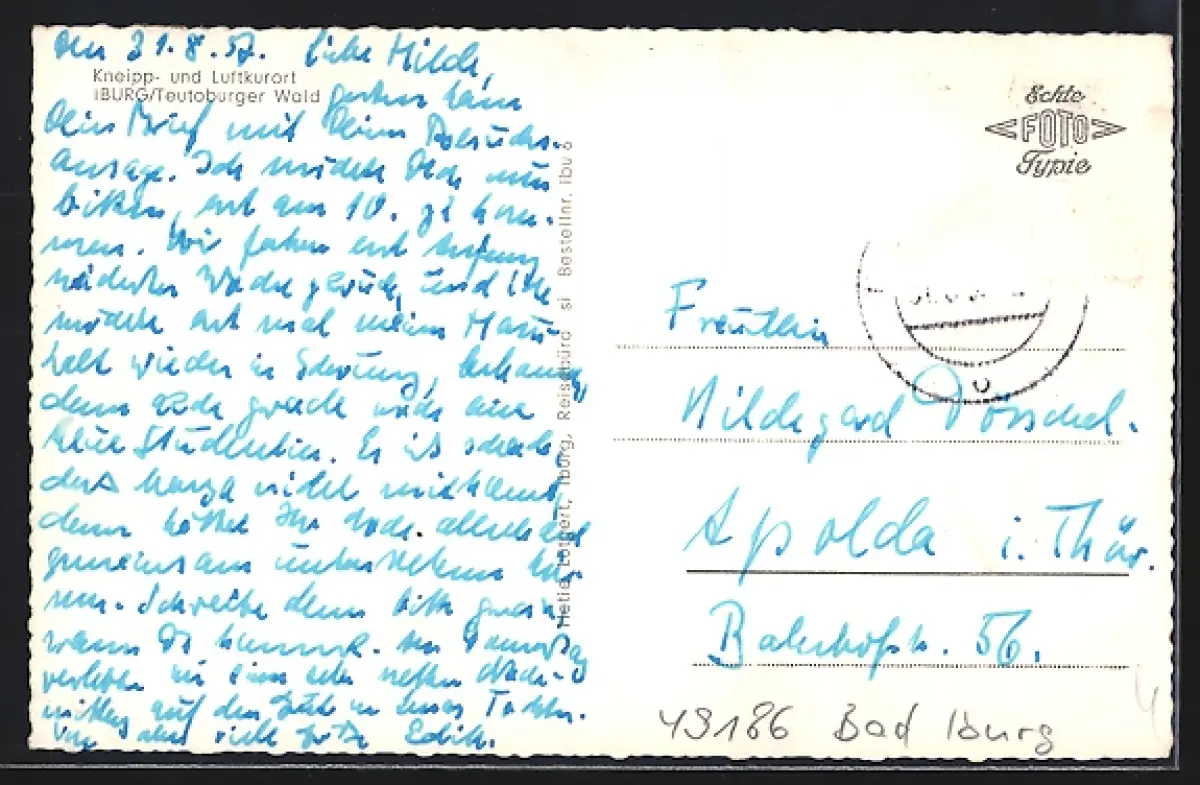 den 31.8.57. Liebe Hilde,
Kneipp- und Luftkurort
IBURG/Teutoburger Wald
gestern kam
Dein Brief mit Deiner Besuchs-
ansage. Ich möchte Dich nun
bitten, erst am 10. zu kom-
men. Wir fahren erst Anfang
nächster Woche zurück, und ich
möchte erst mal meinen Haus-
halt wieder in Schwung,
denn gerade eine
neue Studentin. Es ist schade,
dass nicht mitkommt,
denn hättet Ihr doch allerhand
gemeinsam unternehmen kön-
nen. Schreibe dann bitte genau,
wann Du kommst. Am
verleben wir einen sehr netten Nach-
mittag auf der
viele Edith.
Hetie Bestellnr. Ibu 6
Iburg, Reisebüro
Echte
FOTO
Typie
Fräulein
Hildegard Dörschel.
Apolda i. Thür.
Bahnhofstr. 56.
49186 Bad Iburg